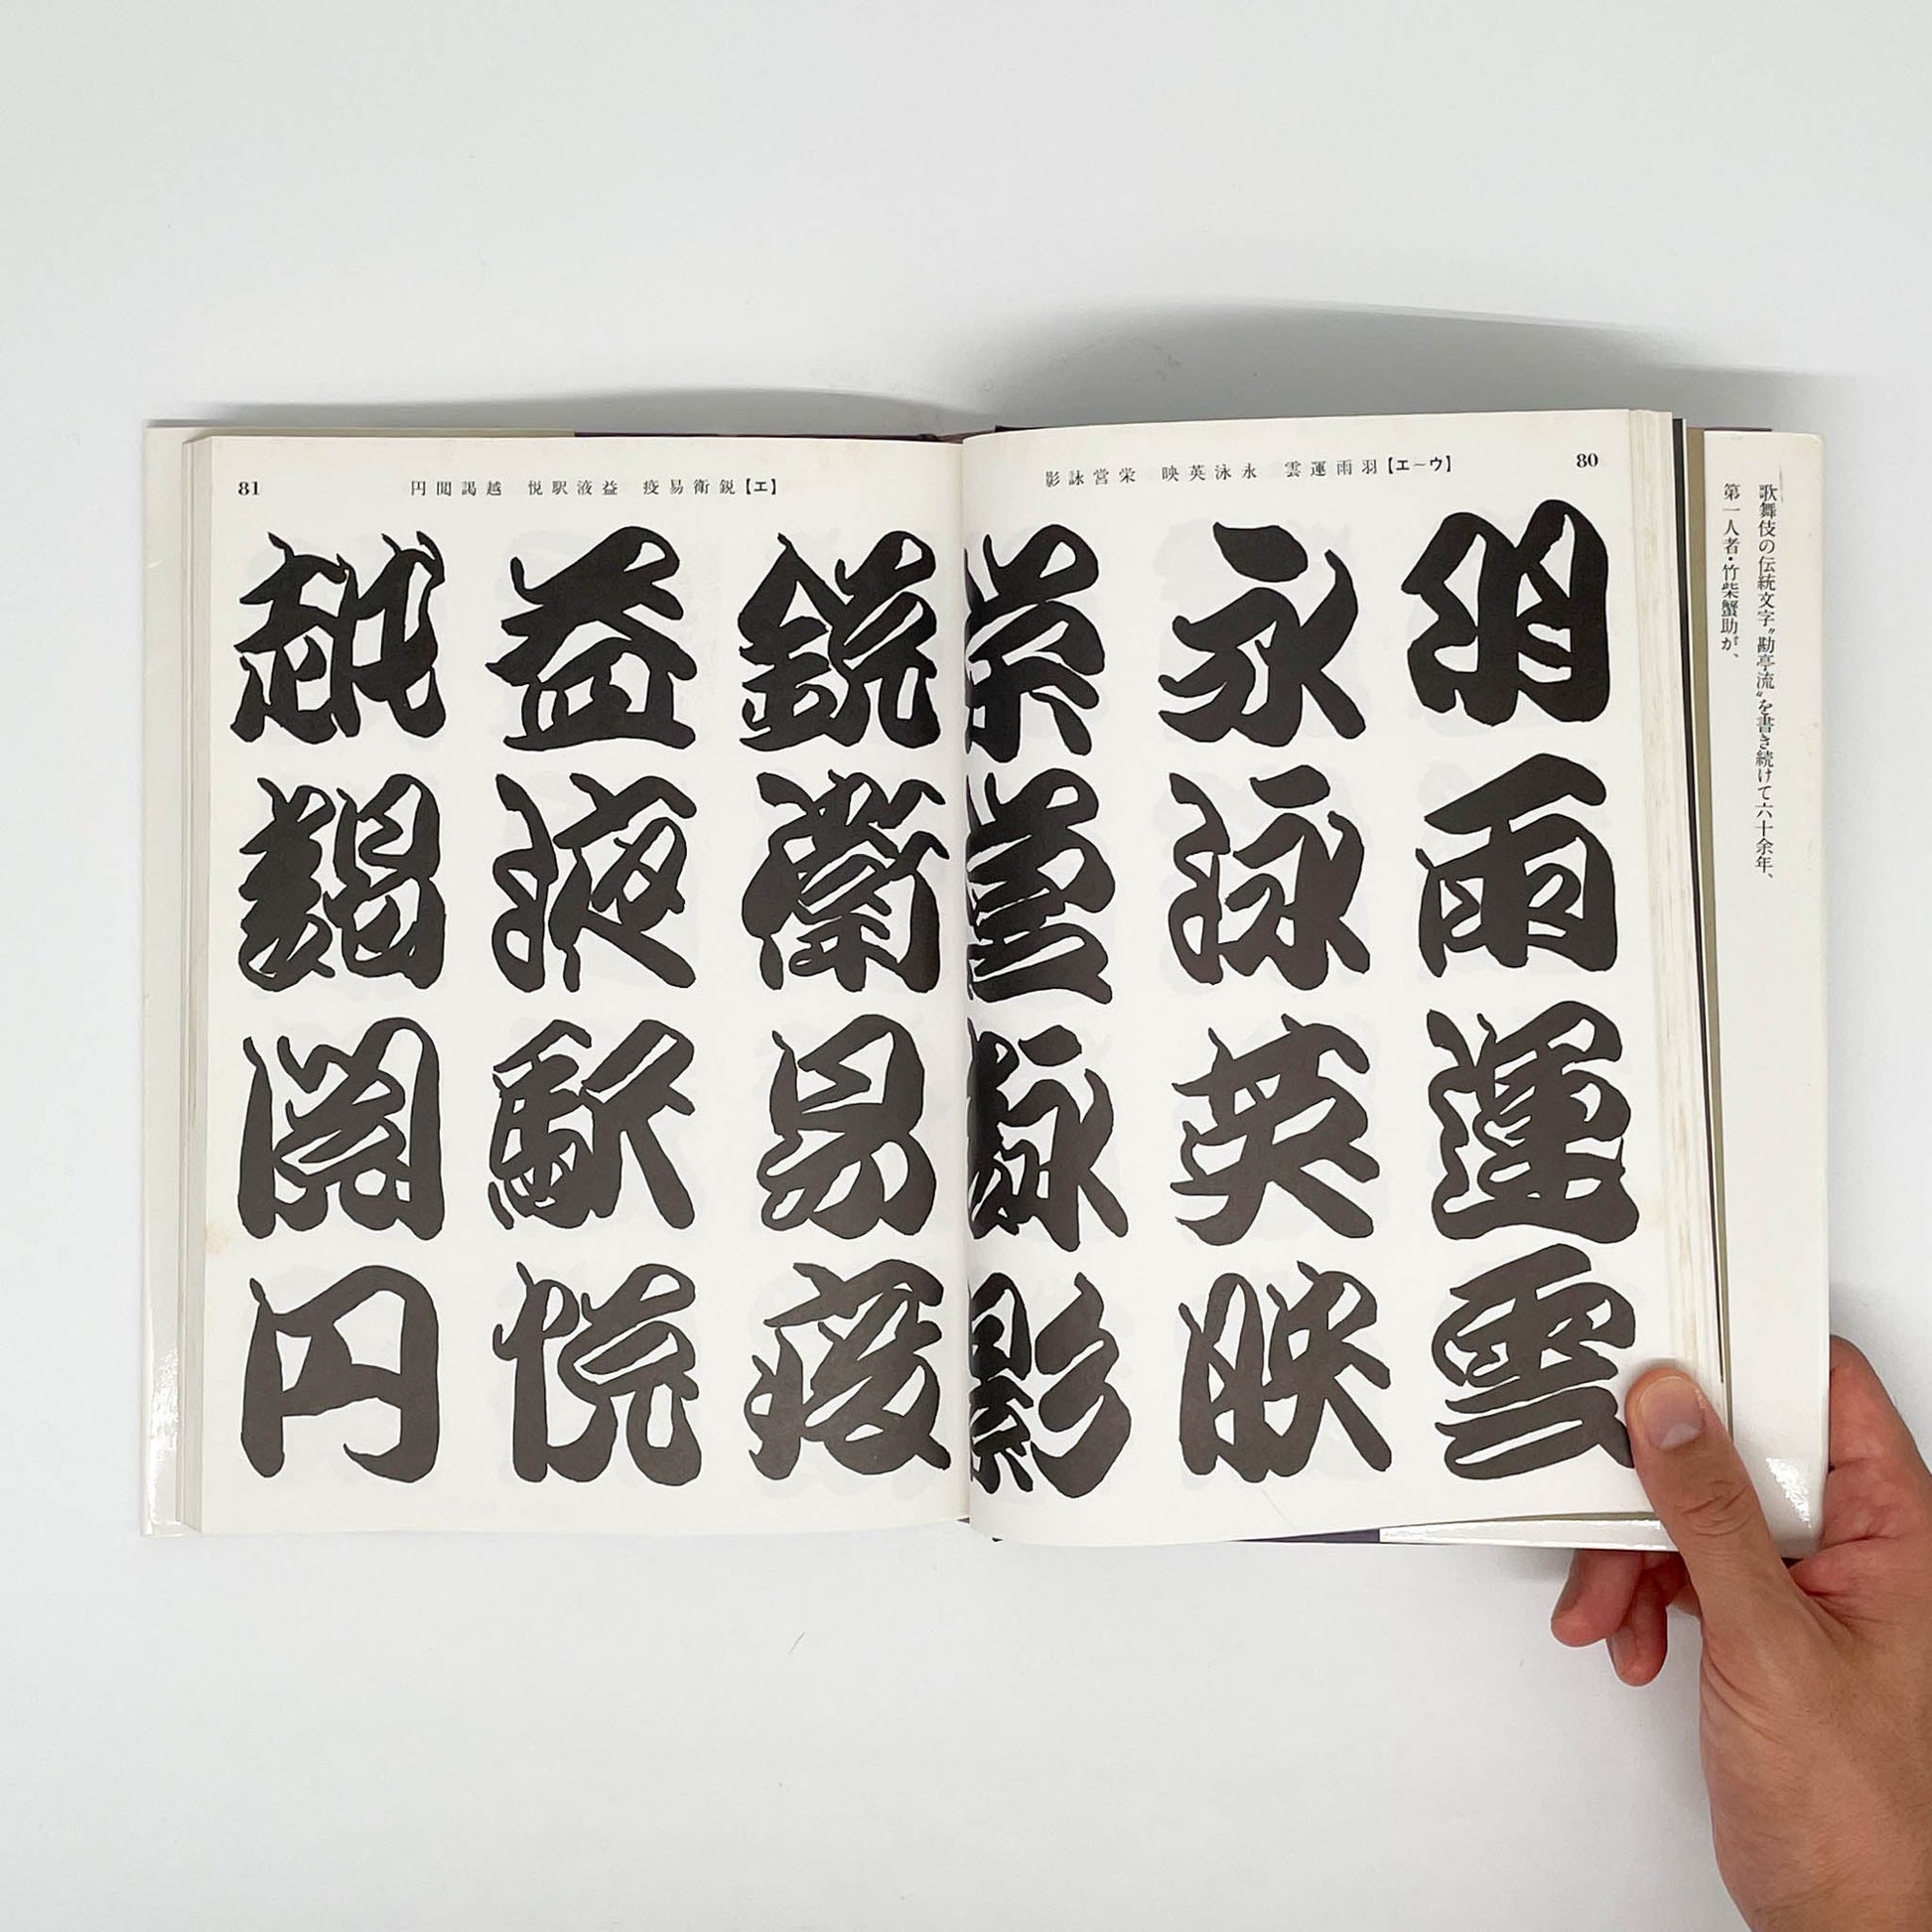 歌舞伎の伝統文字〝勘亭流〟を書き続けて六十余年、
第一人者・竹柴蟹助が、
80
【エ〜ウ】羽雨運雲 永泳英映 栄営詠影
羽雨運雲
永泳英映
栄営詠影
81
【エ】鋭衛易疫 益液駅悦 越謁閲円
鋭衛易疫
益液駅悦
越謁閲円